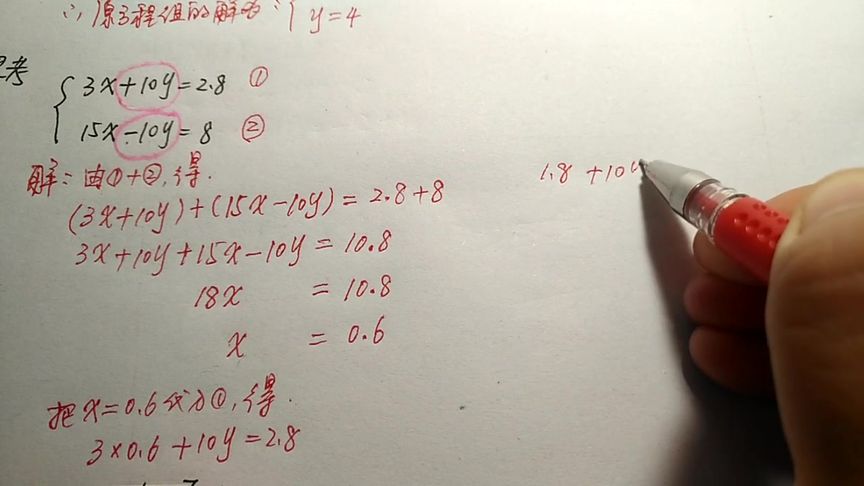 ∴原方程组的解为{y=4
考
{3x+10y=2.8 ①
15x-10y=8 ②
解：由①+②,得.
(3x+10y)+(15x-10y)=2.8+8
3x+10y+15x-10y=10.8
18x =10.8
x =0.6
把x=0.6代入①,得.
3×0.6+10y=2.8
1.8 +10